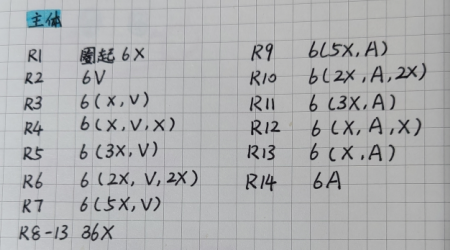 主体
R1 圈起 6X
R2 6V
R3 6(X,V)
R4 6(X,V,X)
R5 6(3X,V)
R6 6(2X,V,2X)
R7 6(5X,V)
R8-13 36X
R9 6(5X,A)
R10 6(2X,A,2X)
R11 6(3X,A)
R12 6(X,A,X)
R13 6(X,A)
R14 6A